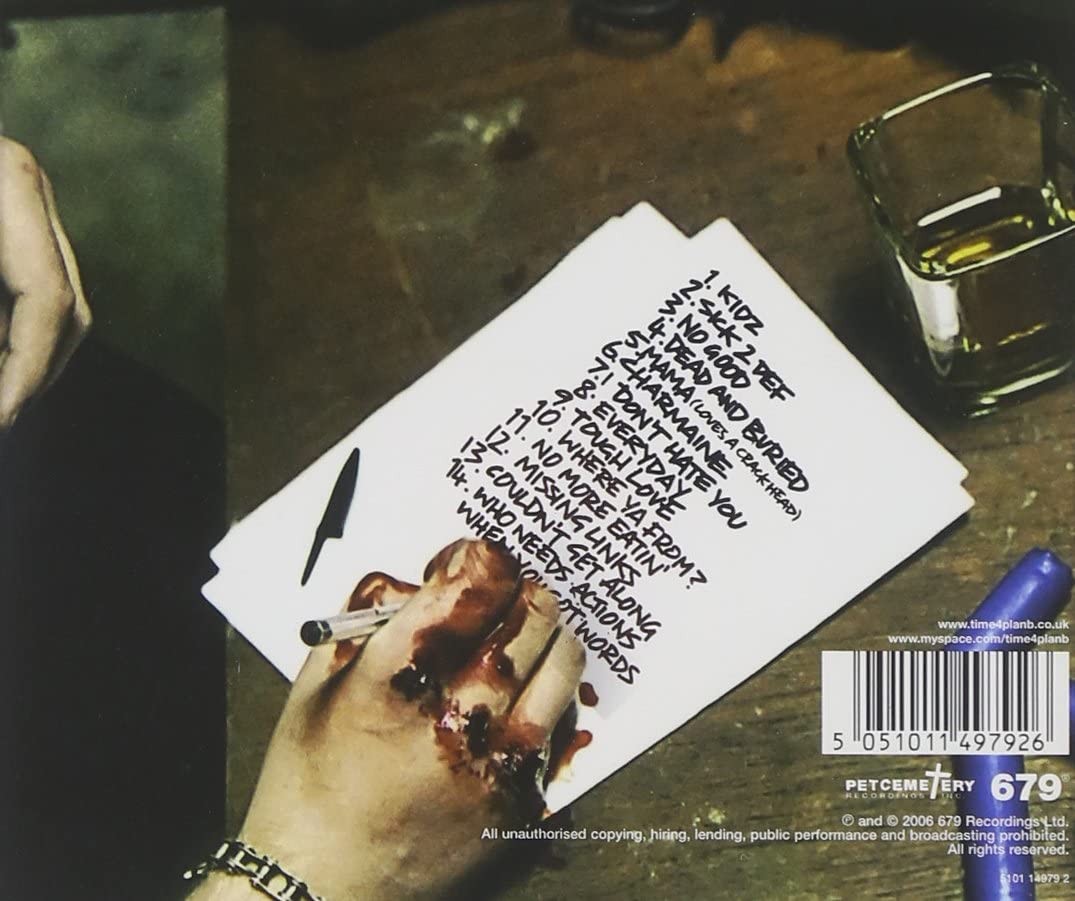 1. KIDZ
2. SICK 2 DEF
3. NO GOOD
4. DEAD AND BURIED
5. MAMA (LOVES A CRACKHEAD)
6. CHARMAINE
7. I DON'T HATE YOU
8. EVERYDAY
9. TOUGH LOVE
10. WHERE YA FROM?
11. NO MORE EATIN'
12. MISSING LINKS
13. COULDN'T GET ALONG
14. WHO NEEDS ACTIONS
WHEN YOU GOT WORDS
www.time4planb.co.uk
www.myspace.com/time4planb
5 051011 497926
PETCEMETERY 679
RECORDINGS INC
℗ and © 2006 679 Recordings Ltd.
All unauthorised copying, hiring, lending, public performance and broadcasting prohibited.
All rights reserved.
5101 14979 2